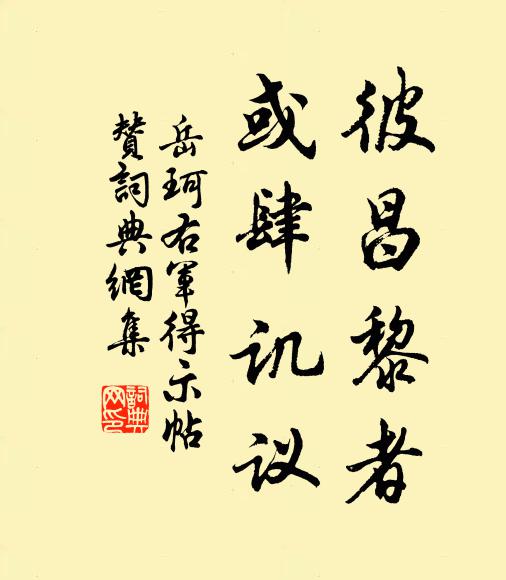 彼昌黎者
或肆讥议
岳珂右軍得示帖
賛詞典網集
詞典
网印